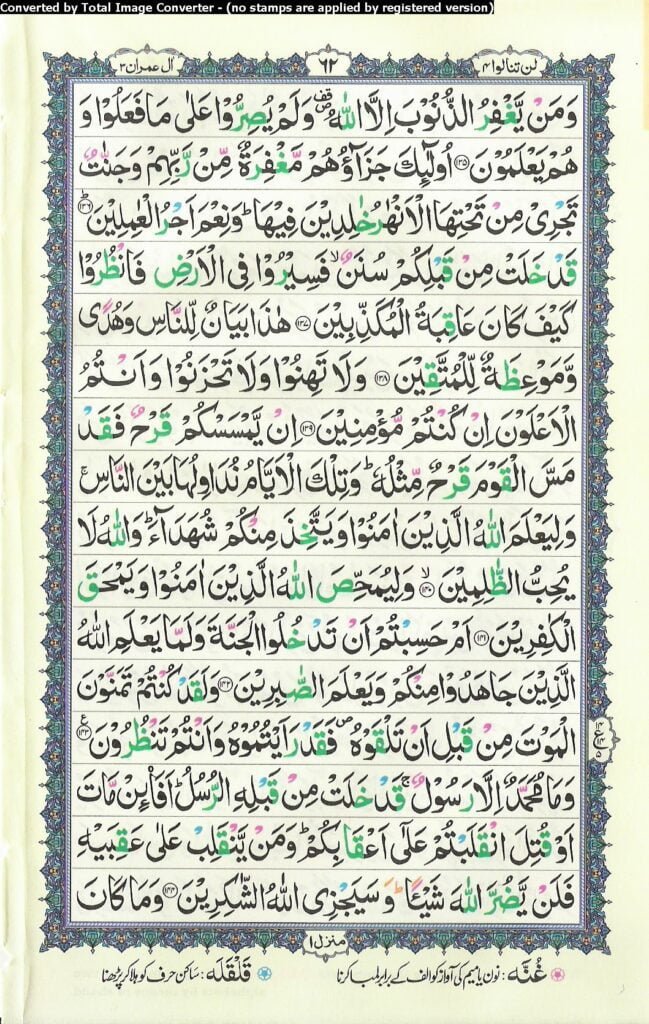 Converted by Total Image Converter - (no stamps are applied by registered version)
لن تنالوا ۴ ٦٢ ال عمران ۳
وَمَنْ يَّغْفِرُ الذُّنُوْبَ اِلَّا اللّٰهُ ۪۫ وَلَمْ يُصِرُّوْا عَلٰى مَا فَعَلُوْا وَ
هُمْ يَعْلَمُوْنَ ﴿۱۳۵﴾ اُولٰٓئِكَ جَزَآؤُهُمْ مَّغْفِرَةٌ مِّنْ رَّبِّهِمْ وَجَنّٰتٌ
تَجْرِيْ مِنْ تَحْتِهَا الْاَنْهٰرُ خٰلِدِيْنَ فِيْهَا ؕ وَنِعْمَ اَجْرُ الْعٰمِلِيْنَ ؕ﴿۱۳۶﴾
قَدْ خَلَتْ مِنْ قَبْلِكُمْ سُنَنٌ ۙ فَسِيْرُوْا فِي الْاَرْضِ فَانْظُرُوْا
كَيْفَ كَانَ عَاقِبَةُ الْمُكَذِّبِيْنَ ﴿۱۳۷﴾ هٰذَا بَيَانٌ لِّلنَّاسِ وَهُدًى
وَّمَوْعِظَةٌ لِّلْمُتَّقِيْنَ ﴿۱۳۸﴾ وَلَا تَهِنُوْا وَلَا تَحْزَنُوْا وَاَنْتُمُ
الْاَعْلَوْنَ اِنْ كُنْتُمْ مُّؤْمِنِيْنَ ﴿۱۳۹﴾ اِنْ يَّمْسَسْكُمْ قَرْحٌ فَقَدْ
مَسَّ الْقَوْمَ قَرْحٌ مِّثْلُهٗ ؕ وَتِلْكَ الْاَيَّامُ نُدَاوِلُهَا بَيْنَ النَّاسِ ۚ
وَلِيَعْلَمَ اللّٰهُ الَّذِيْنَ اٰمَنُوْا وَيَتَّخِذَ مِنْكُمْ شُهَدَآءَ ؕ وَاللّٰهُ لَا
يُحِبُّ الظّٰلِمِيْنَ ۙ﴿۱۴۰﴾ وَلِيُمَحِّصَ اللّٰهُ الَّذِيْنَ اٰمَنُوْا وَيَمْحَقَ
الْكٰفِرِيْنَ ﴿۱۴۱﴾ اَمْ حَسِبْتُمْ اَنْ تَدْخُلُوا الْجَنَّةَ وَلَمَّا يَعْلَمِ اللّٰهُ
الَّذِيْنَ جَاهَدُوْا مِنْكُمْ وَيَعْلَمَ الصّٰبِرِيْنَ ﴿۱۴۲﴾ وَلَقَدْ كُنْتُمْ تَمَنَّوْنَ
الْمَوْتَ مِنْ قَبْلِ اَنْ تَلْقَوْهُ ۪ فَقَدْ رَاَيْتُمُوْهُ وَاَنْتُمْ تَنْظُرُوْنَ ﴿۱۴۳﴾ ع
وَمَا مُحَمَّدٌ اِلَّا رَسُوْلٌ ۚ قَدْ خَلَتْ مِنْ قَبْلِهِ الرُّسُلُ ؕ اَفَا۟ئِنْ مَّاتَ
اَوْ قُتِلَ انْقَلَبْتُمْ عَلٰٓى اَعْقَابِكُمْ ؕ وَمَنْ يَّنْقَلِبْ عَلٰى عَقِبَيْهِ
فَلَنْ يَّضُرَّ اللّٰهَ شَيْـًٔا ؕ وَسَيَجْزِي اللّٰهُ الشّٰكِرِيْنَ ﴿۱۴۴﴾ وَمَا كَانَ
منزل ۱
غُنَّه: نون یا میم کی آواز کو الف کے برابر لمبا کرنا قَلْقَلَه: ساکن حرف کو ہلا کر پڑھنا